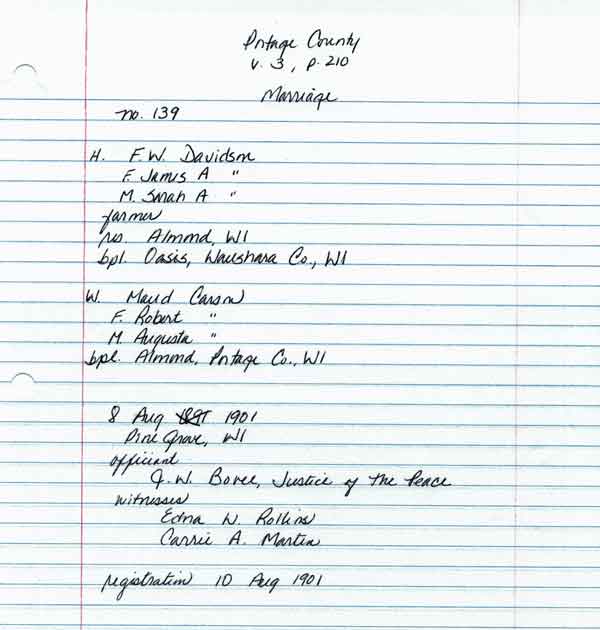 Portage County
v. 3, p. 210
Marriage
no. 139
H. F.W. Davidson
F. James A "
M. Sarah A "
farmer
res. Almond, WI
bpl. Oasis, Waushara Co., WI
W. Maud Carson
F. Robert "
M. Augusta "
bpl. Almond, Portage Co., WI
8 Aug 1901
Pine Grove, WI
officiant
J.W. Bovee, Justice of the Peace
witnesses
Edna W. Rollins
Carrie A. Martin
registration 10 Aug 1901